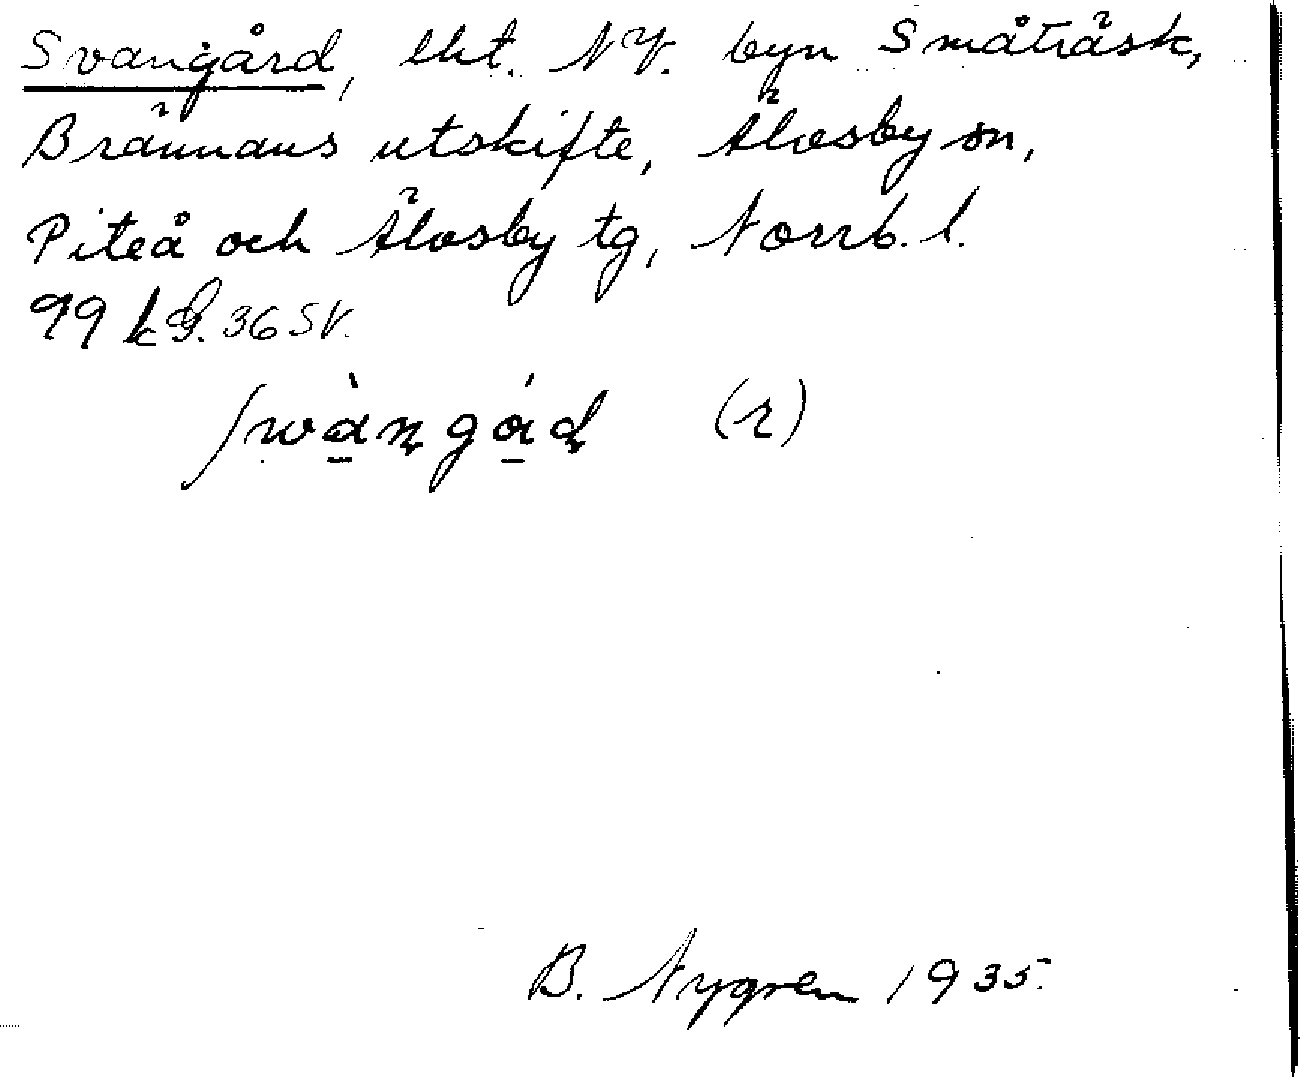 Svangård, lht. NV. byn Småträsk,
Brännans utskifte, Älvsby sn,
Piteå och Älvsby tg, Norrb. l.
99 k G. 36 SV.
swàngåd (r)
B. Nygren 1935.